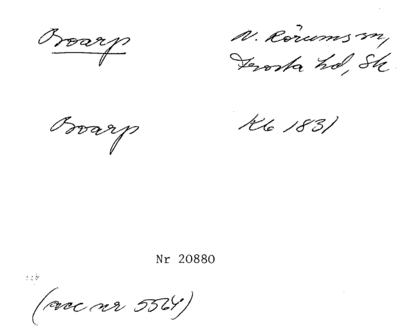 Boarp N. Rörums sn,
Frosta hd, Sk.
Boarp Kb 1831
Nr 20880
(acc nr 5564)